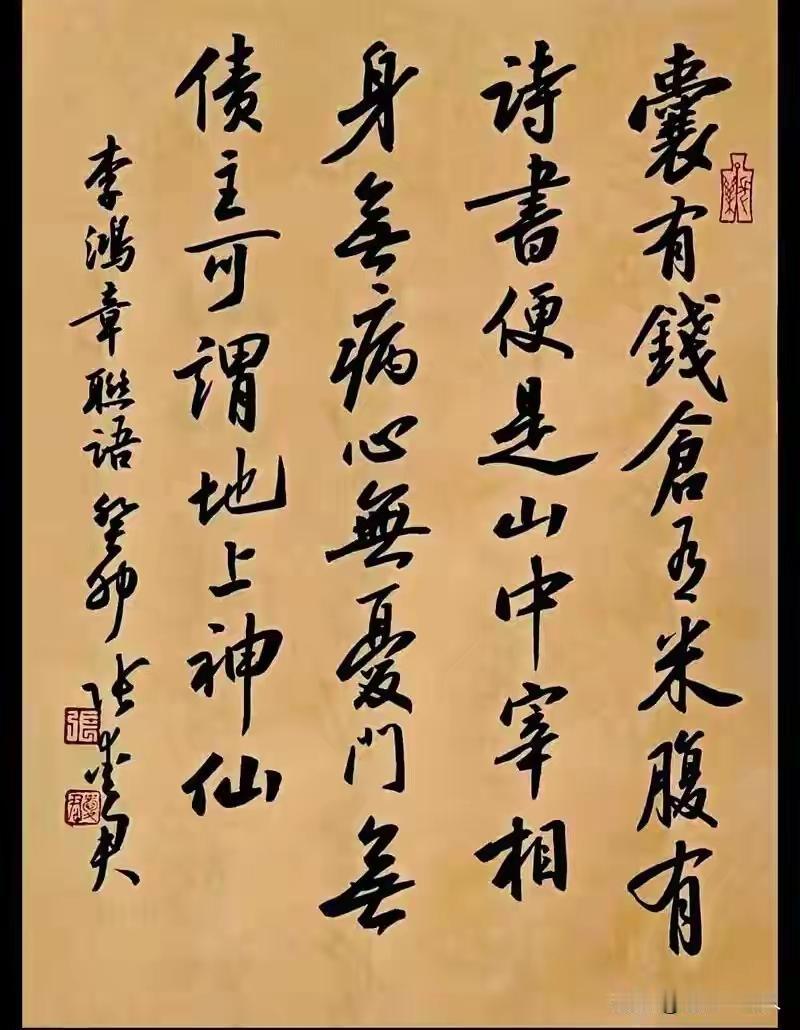 囊有錢倉有米腹有
詩書便是山中宰相
身無病心無憂門無
债主可謂地上神仙
李鴻章聯語 癸卯 张愛君
張